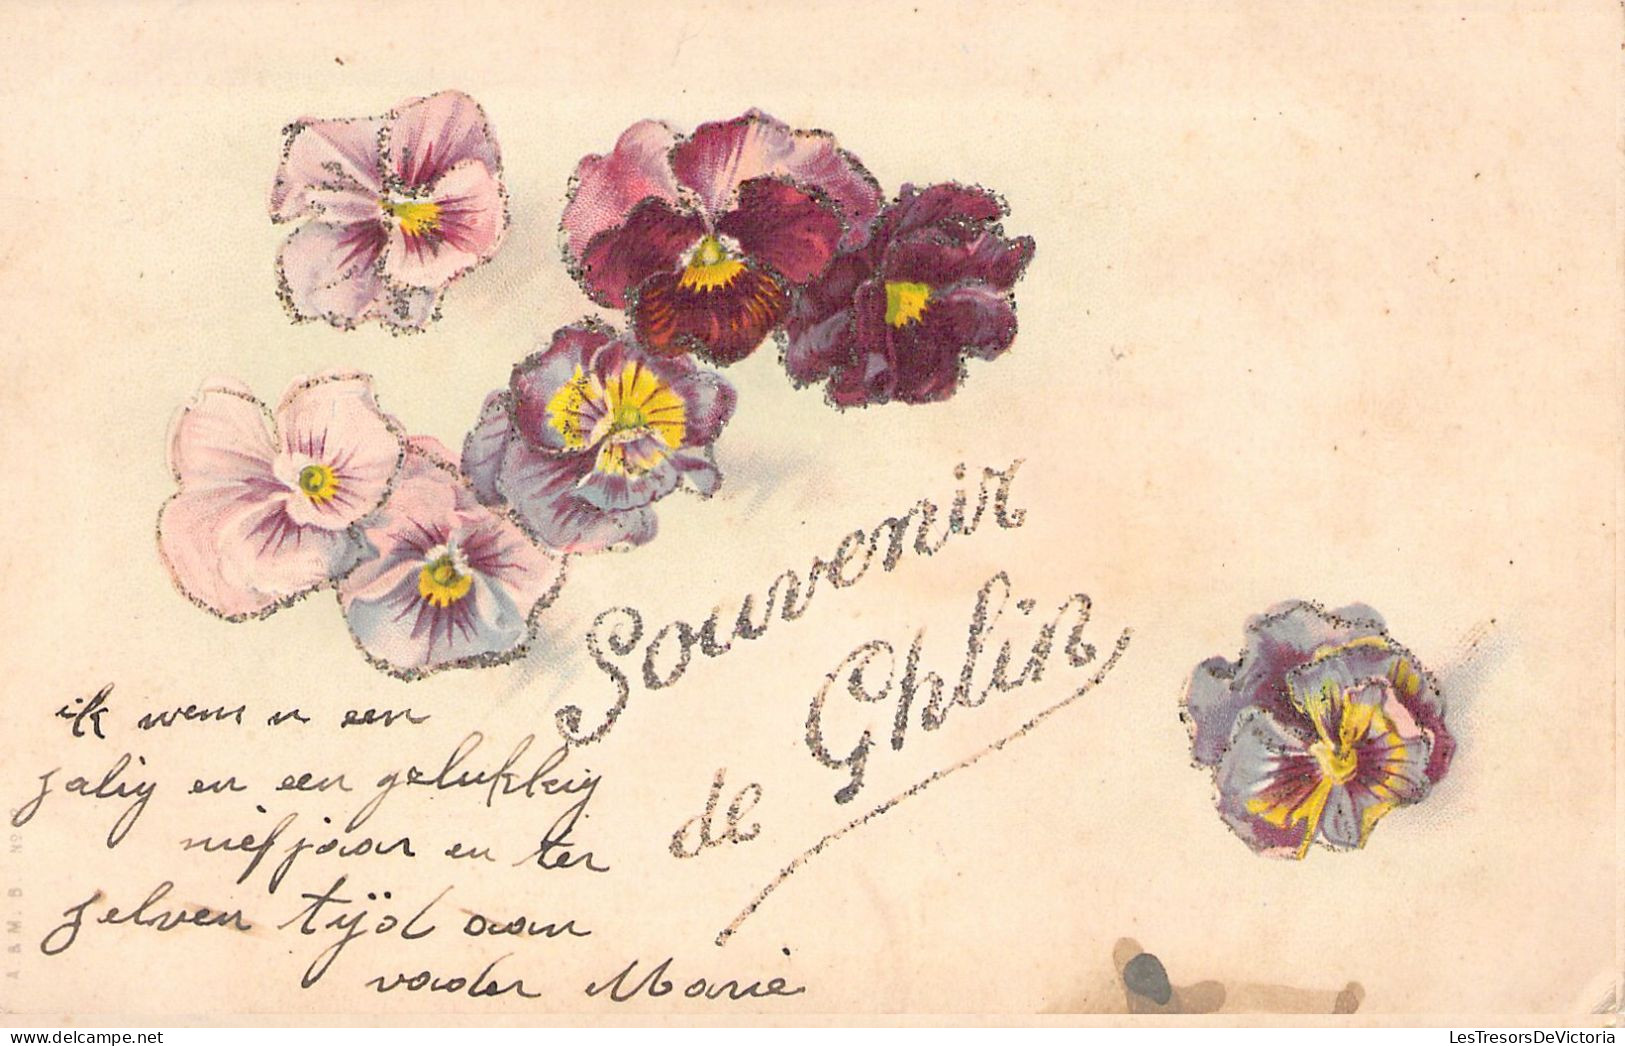 Souvenir
de Ghlin
ik wens u een
zalig en een gelukkig
niefjaar en ter
zelven tijd aan
vader Marie
A & M. B. Nº
LesTresorsDeVictoria